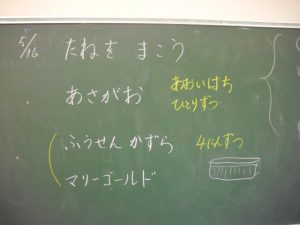 5/16 たねを まこう
あさがお
あおいはち
ひとりずつ
ふうせんかずら
4にんずつ
マリーゴールド